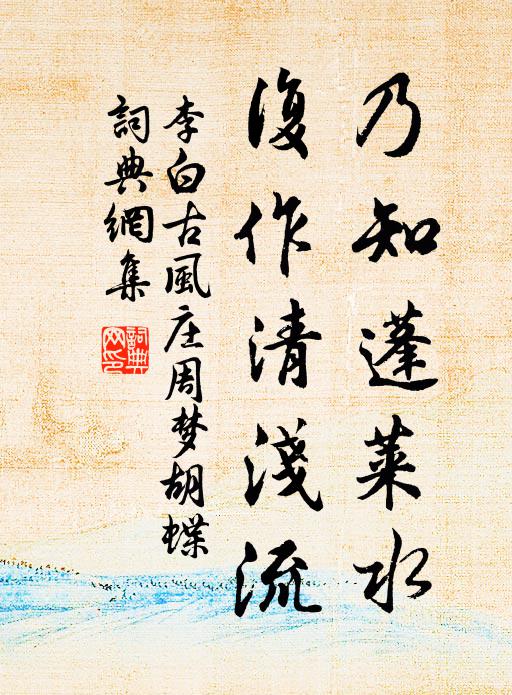 乃知蓬莱水
復作清淺流
李白古風庄周梦胡蝶
詞典網集
詞典網印